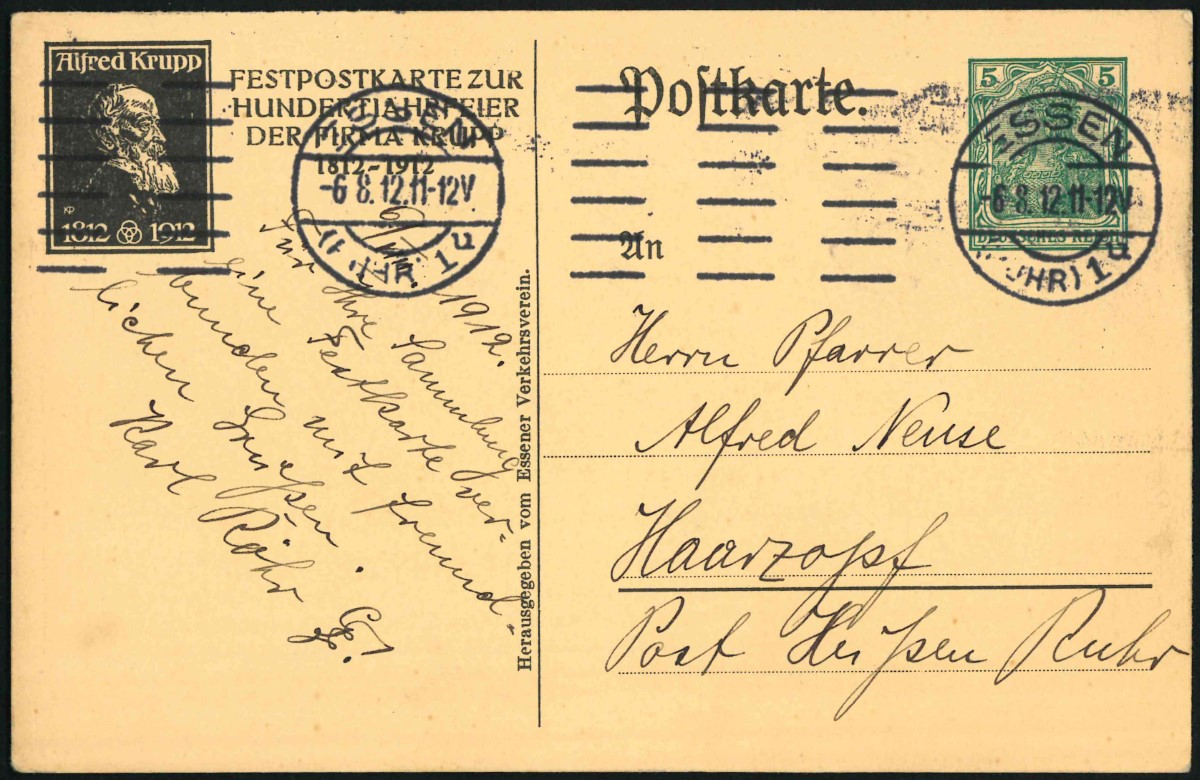 Alfred Krupp
1812 1912
FESTPOSTKARTE ZUR
HUNDERTJAHRFEIER
DER FIRMA KRUPP
1812-1912
ESSEN
-6.8.12.11-12V
(RUHR) 1u
Postkarte.
5 5
DEUTSCHES REICH
ESSEN
-6.8.12.11-12V
(RUHR) 1u
An
Herrn Pfarrer
Alfred Neuse
Haarzopf
Post Heißen Ruhr
1912.
Für Ihre Sammlung
eine Festkarte ver-
bunden mit freund-
lichen Grüßen.
Karl Röhr
Herausgegeben vom Essener Verkehrsverein.